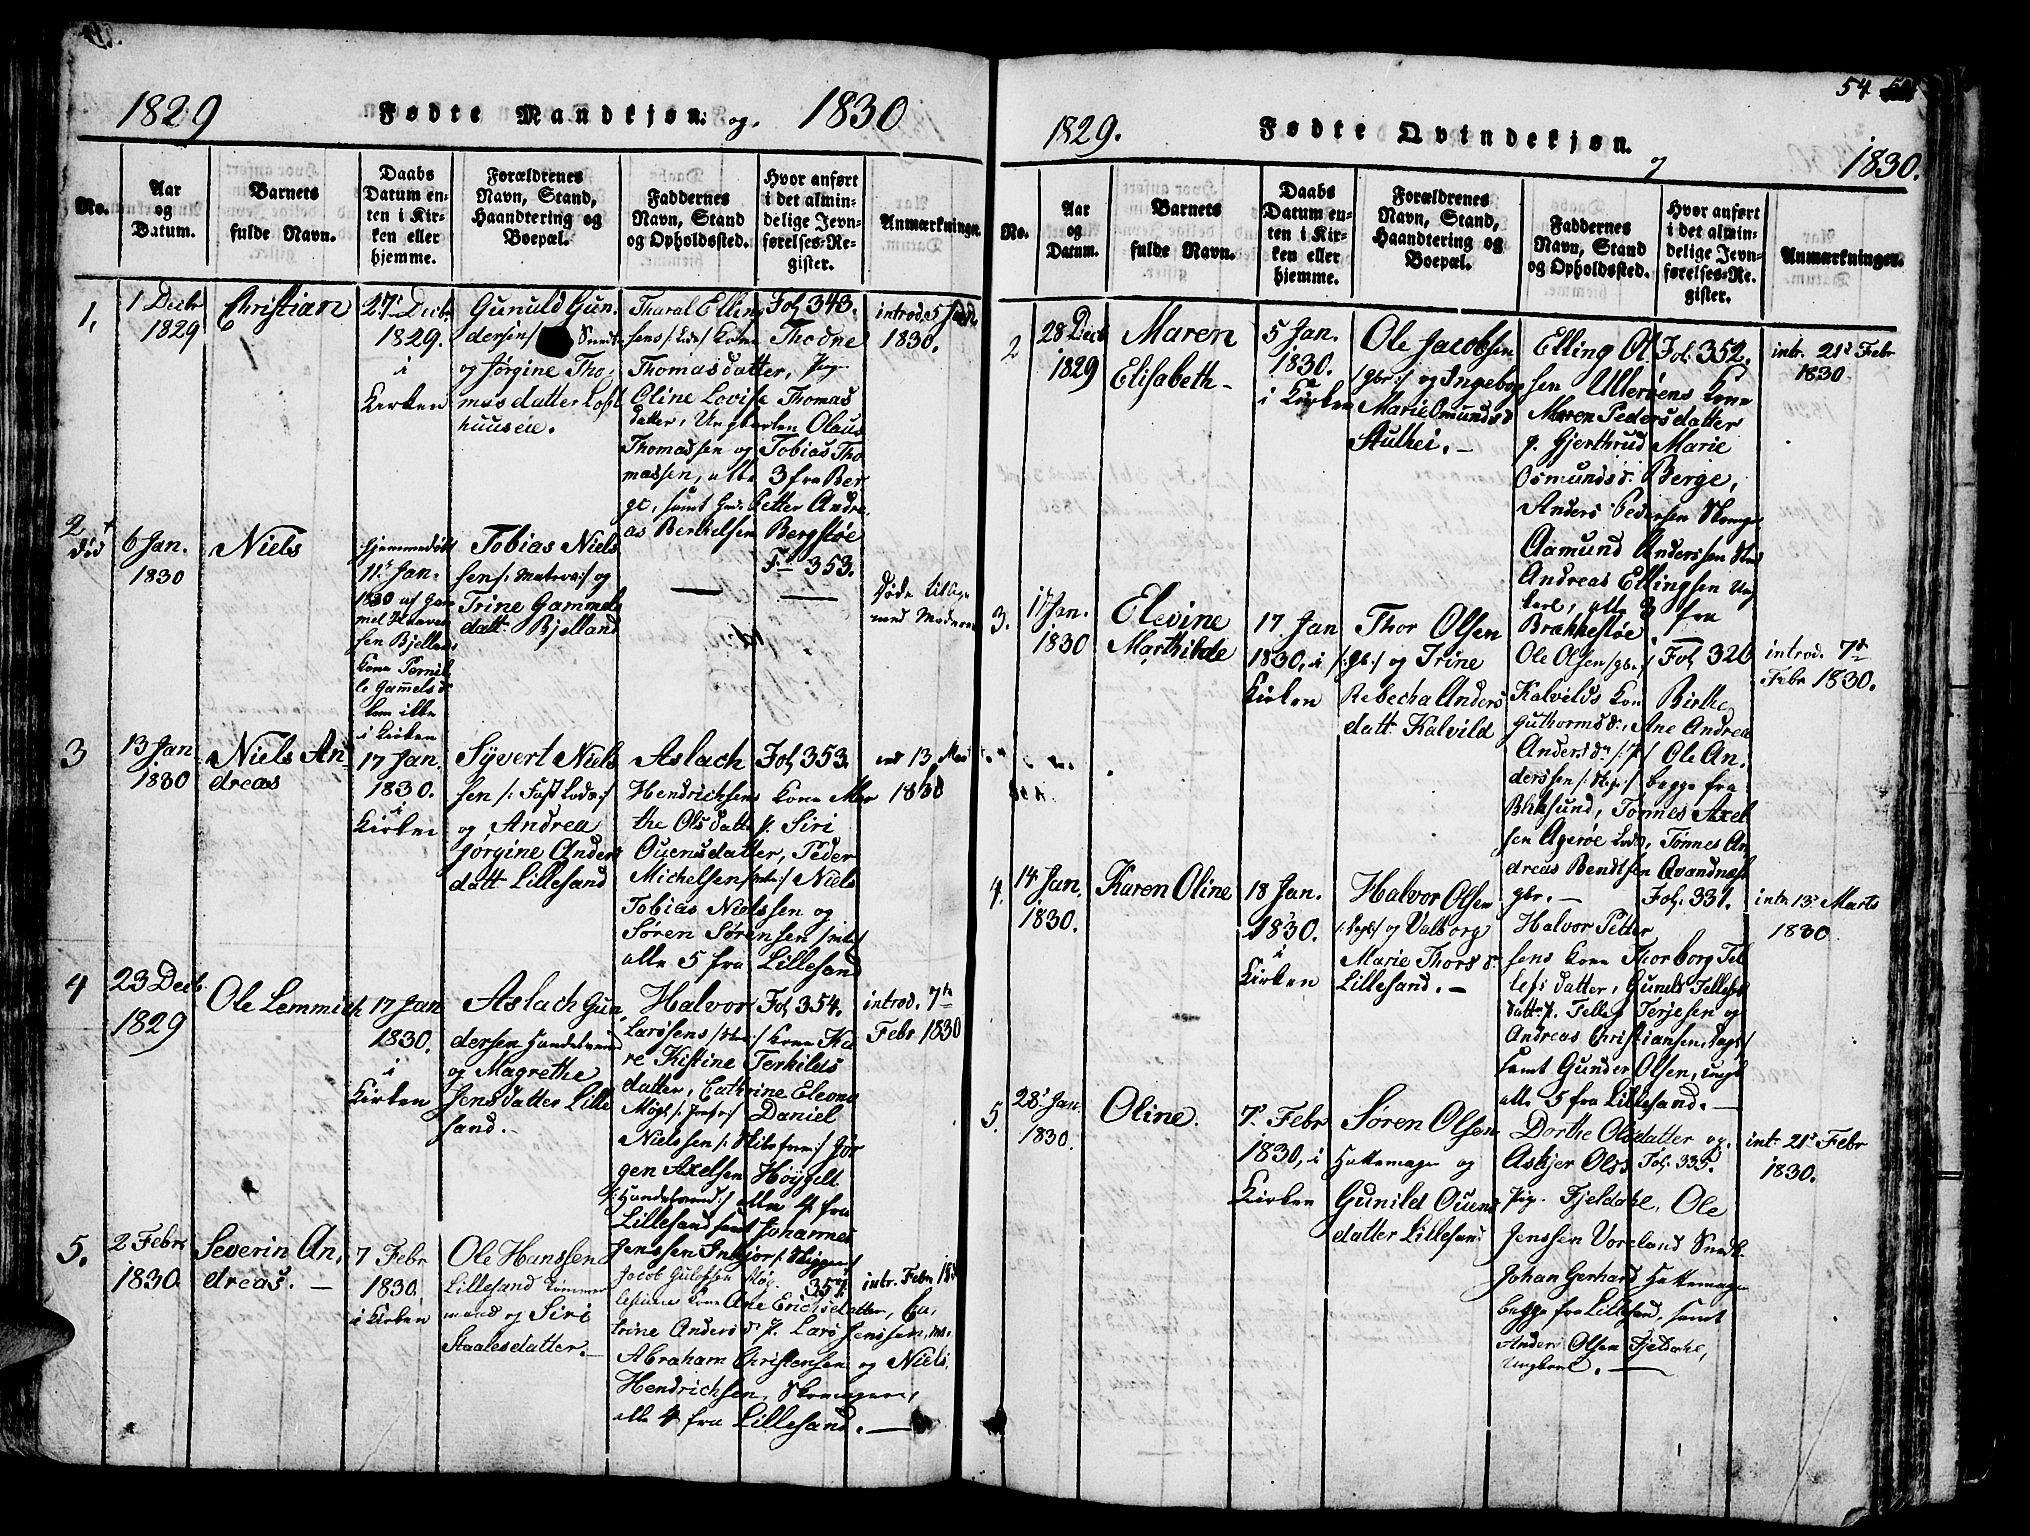 1829 Fødte Mandkjøn. og. 1830
No.
Aar
og
Datum.
Barnets
fulde Navn.
Daabs
Datum en-
ten i Kir-
ken eller
hjemme.
Forældrenes
Navn, Stand,
Haandtering og
Boepæl.
Faddernes
Navn, Stand
og Opholdssted.
Hvor anført
i det almin-
delige Jevn-
førelses-Re-
gister.
Anmærkninger.
1.
1 Decbr
1829
Christian
27 Decbr
1829.
i
Kirken
Gunuld Gun
dersen
og Jørgine Tho
masdatter
huusene.
Tharal Elling
sens Kone Thodne
Thomasdatter, Pige
Oline Lovise Thomas
datter, Ungkarlen Olaus
Thomassen og Tobias Tho
massen, alle 3 fra Ber
ge, samt Petter Andre
as Berthelsen Bergstøe
Fol 343.
introd. 5
1830.
2
død
6 Jan.
1830
Niels
Hjemmedøbt
11 Jan.
1830 af Gam
mel
sen Bjellan
Kone Pernil
le Gamelsd
kom ikke
i Kirken
Tobias Niels
sen /: Matros :/ og
Trine Gammels
datt. Bjelland
—
F. 353.
—
Døde tillige
med Moderen
3
13 Jan
1830
Niels An
dreas
17 Jan.
1830.
i
Kirken
Syvert Niels
sen
og Andrea
Jørgine Anders
datt Lillesand
Aslach
Hendrichsens Kone Mar
the Olsdatt p. Siri
Ouensdatter, Peder
Michelsen Niels
Tobias Nielssen og
Søren Sørensen
alle 5 fra Lillesand
Fol 353.
13 Mar
1830
4
23 Decb.
1829
Ole Lemmich
17 Jan
1830.
i
Kirken
Aslach Gun
dersen Handelsmand
og Magrethe
Jensdatter Lille
sand.
Halvor
Larssens Kone Ka
re Kistine Terkilds
datter, Cathrine Eleonor
Daniel
Nielssen Jør
gen Axelsen Høyfelt
alle 4 fra
Lillesand samt Johannes
Jenssen
Fol 354.
introd. 7
Febr 1830
5.
2 Febr
1830.
Severin An
dreas. —
7 Febr
1830.
i Kirken
Ole Hanssen
Lillesand Tømmer
mand og Siri
Staalesdatter. —
Jacob
Kone Ane Erichsdatter,
trine Anders d. p. Lars Jenssen,
Abraham Christensen og Niels
Hendrichsen,
alle 4 fra Lillesand. —
intr. Febr
54
1829. Fødte Qvindekjøn. og 1830.
No.
Aar
og
Datum.
Barnets
fulde Navn.
Daabs
Datum en-
ten i Kir-
ken eller
hjemme.
Forældrenes
Navn, Stand,
Haandtering og
Boepæl.
Faddernes
Navn, Stand
og Opholdssted.
Hvor anført
i det almin-
delige Jevn-
førelses-Re-
gister.
Anmærkninger.
2
28 Dec
1829
Maren
Elisabeth –
5 Jan.
1830.
i Kirken
Ole Jacobsen
/gbr:/ og Ingeborg
Marie Omundsd
Stuthei. –
Elling Ol
sen Ullerøens Kone
Maren Pedersdatter
p. Gjerthrud Marie
Osmundsd: Berge,
Anders Pedersen
Aamund Anderssen
Andreas Ellingsen Ung
karl, alle 3 fra
Brækkestøe.
Fol 352.
intr. 21 Febr
1830
3.
11 Jan.
1830
Elevine
Marthilde
17 Jan
1830, i
Kirken
Thor Olsen
/:gb:/ og Trine
Rebecha Anders
datt Kalvild
Ole Olsen /gbr/
Kalvilds Kone Birthe
Guthormsd:, Ane Andrea
Anders dr /:p/ Ole An
derssen begge fra
Blixsund, Tønnes Axel
sen Agerøe Tønnes An
dreas Bendtsen Qvandnæs
gbr. –
Fol 320
introd. 7
Febr 1830.
4.
14 Jan.
1830.
Karen Oline
18 Jan.
1830.
i
Kirken
Halvor Olsen
og Valborg
Marie Thorsd.
Lillesand. –
Halvor Petter
sens Kone Thorborg Tel
lefs datter, Gunild Tellefs
datt. p. Tellef Terjesen og
Andreas Christiansen,
samt Gunder Olsen,
alle 5 fra Lillesand. –
Fol. 331.
intr. 13 Marts
1830
5.
28 Jan.
1830.
Oline.
7. Febr
1830, i
Kirken
Søren Olsen
Hattemager og
Gunild Ouens
datter Lillesand
Dorthe Olsdatter og
Askjer Olss
Pige Fjeldahl, Ole
Jenssen Voreland
Johan Gerhard Hattemager
begge fra Lillesand, samt
Anders Olsen Fjeldahl,
Ungkarl. —
Fol. 335.
intr. 21 Febr
1830.